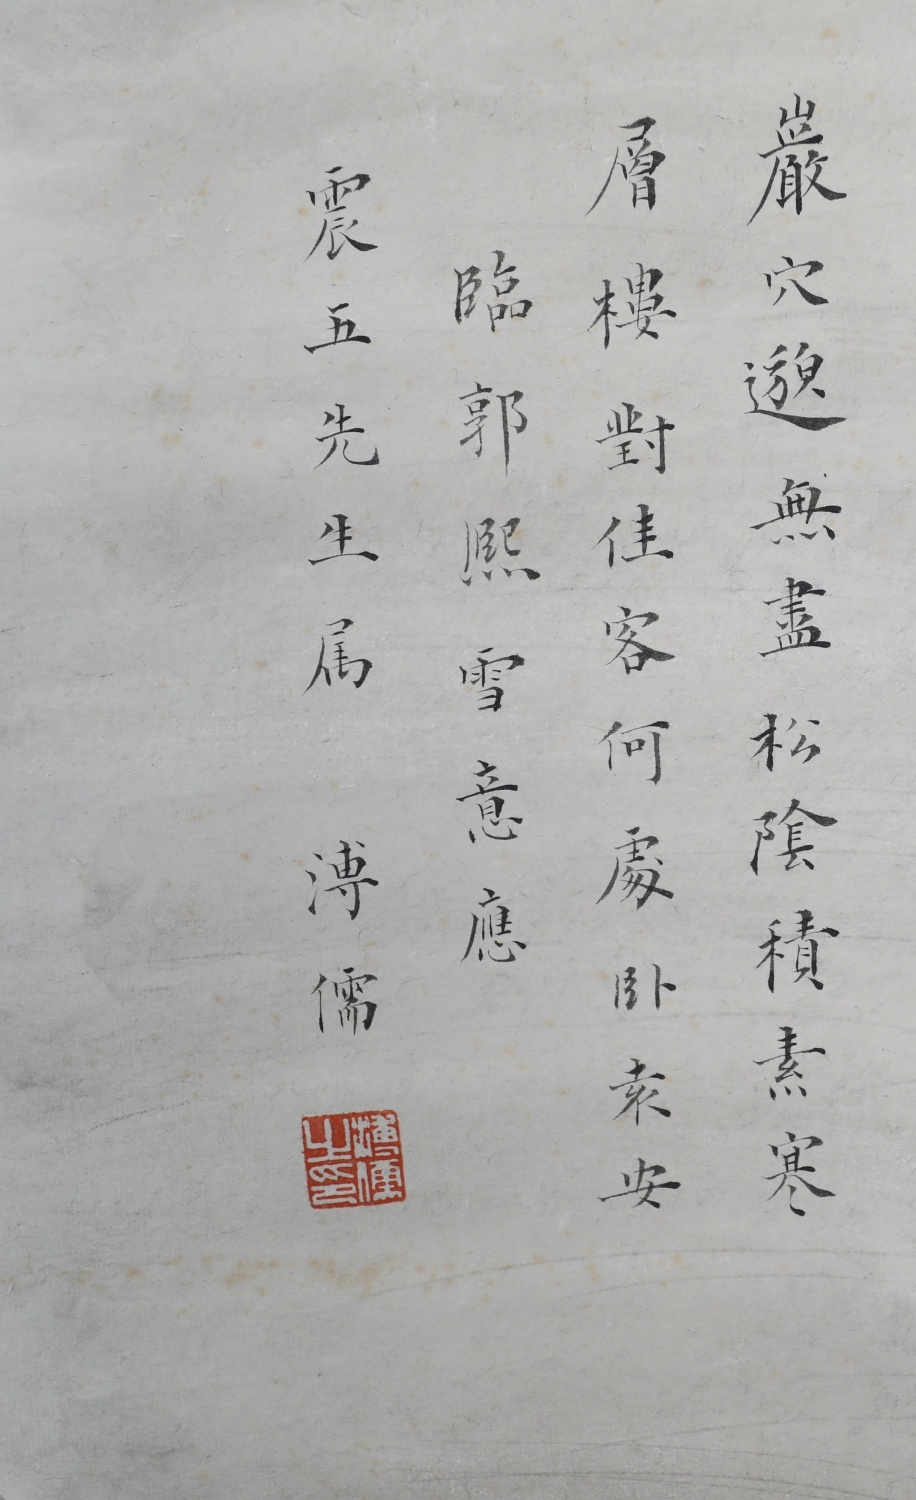 巖穴邈無盡松陰積素寒
層樓對佳客何處卧袁安
臨郭熙雪意應
震五先生属 溥儒
溥儒之印